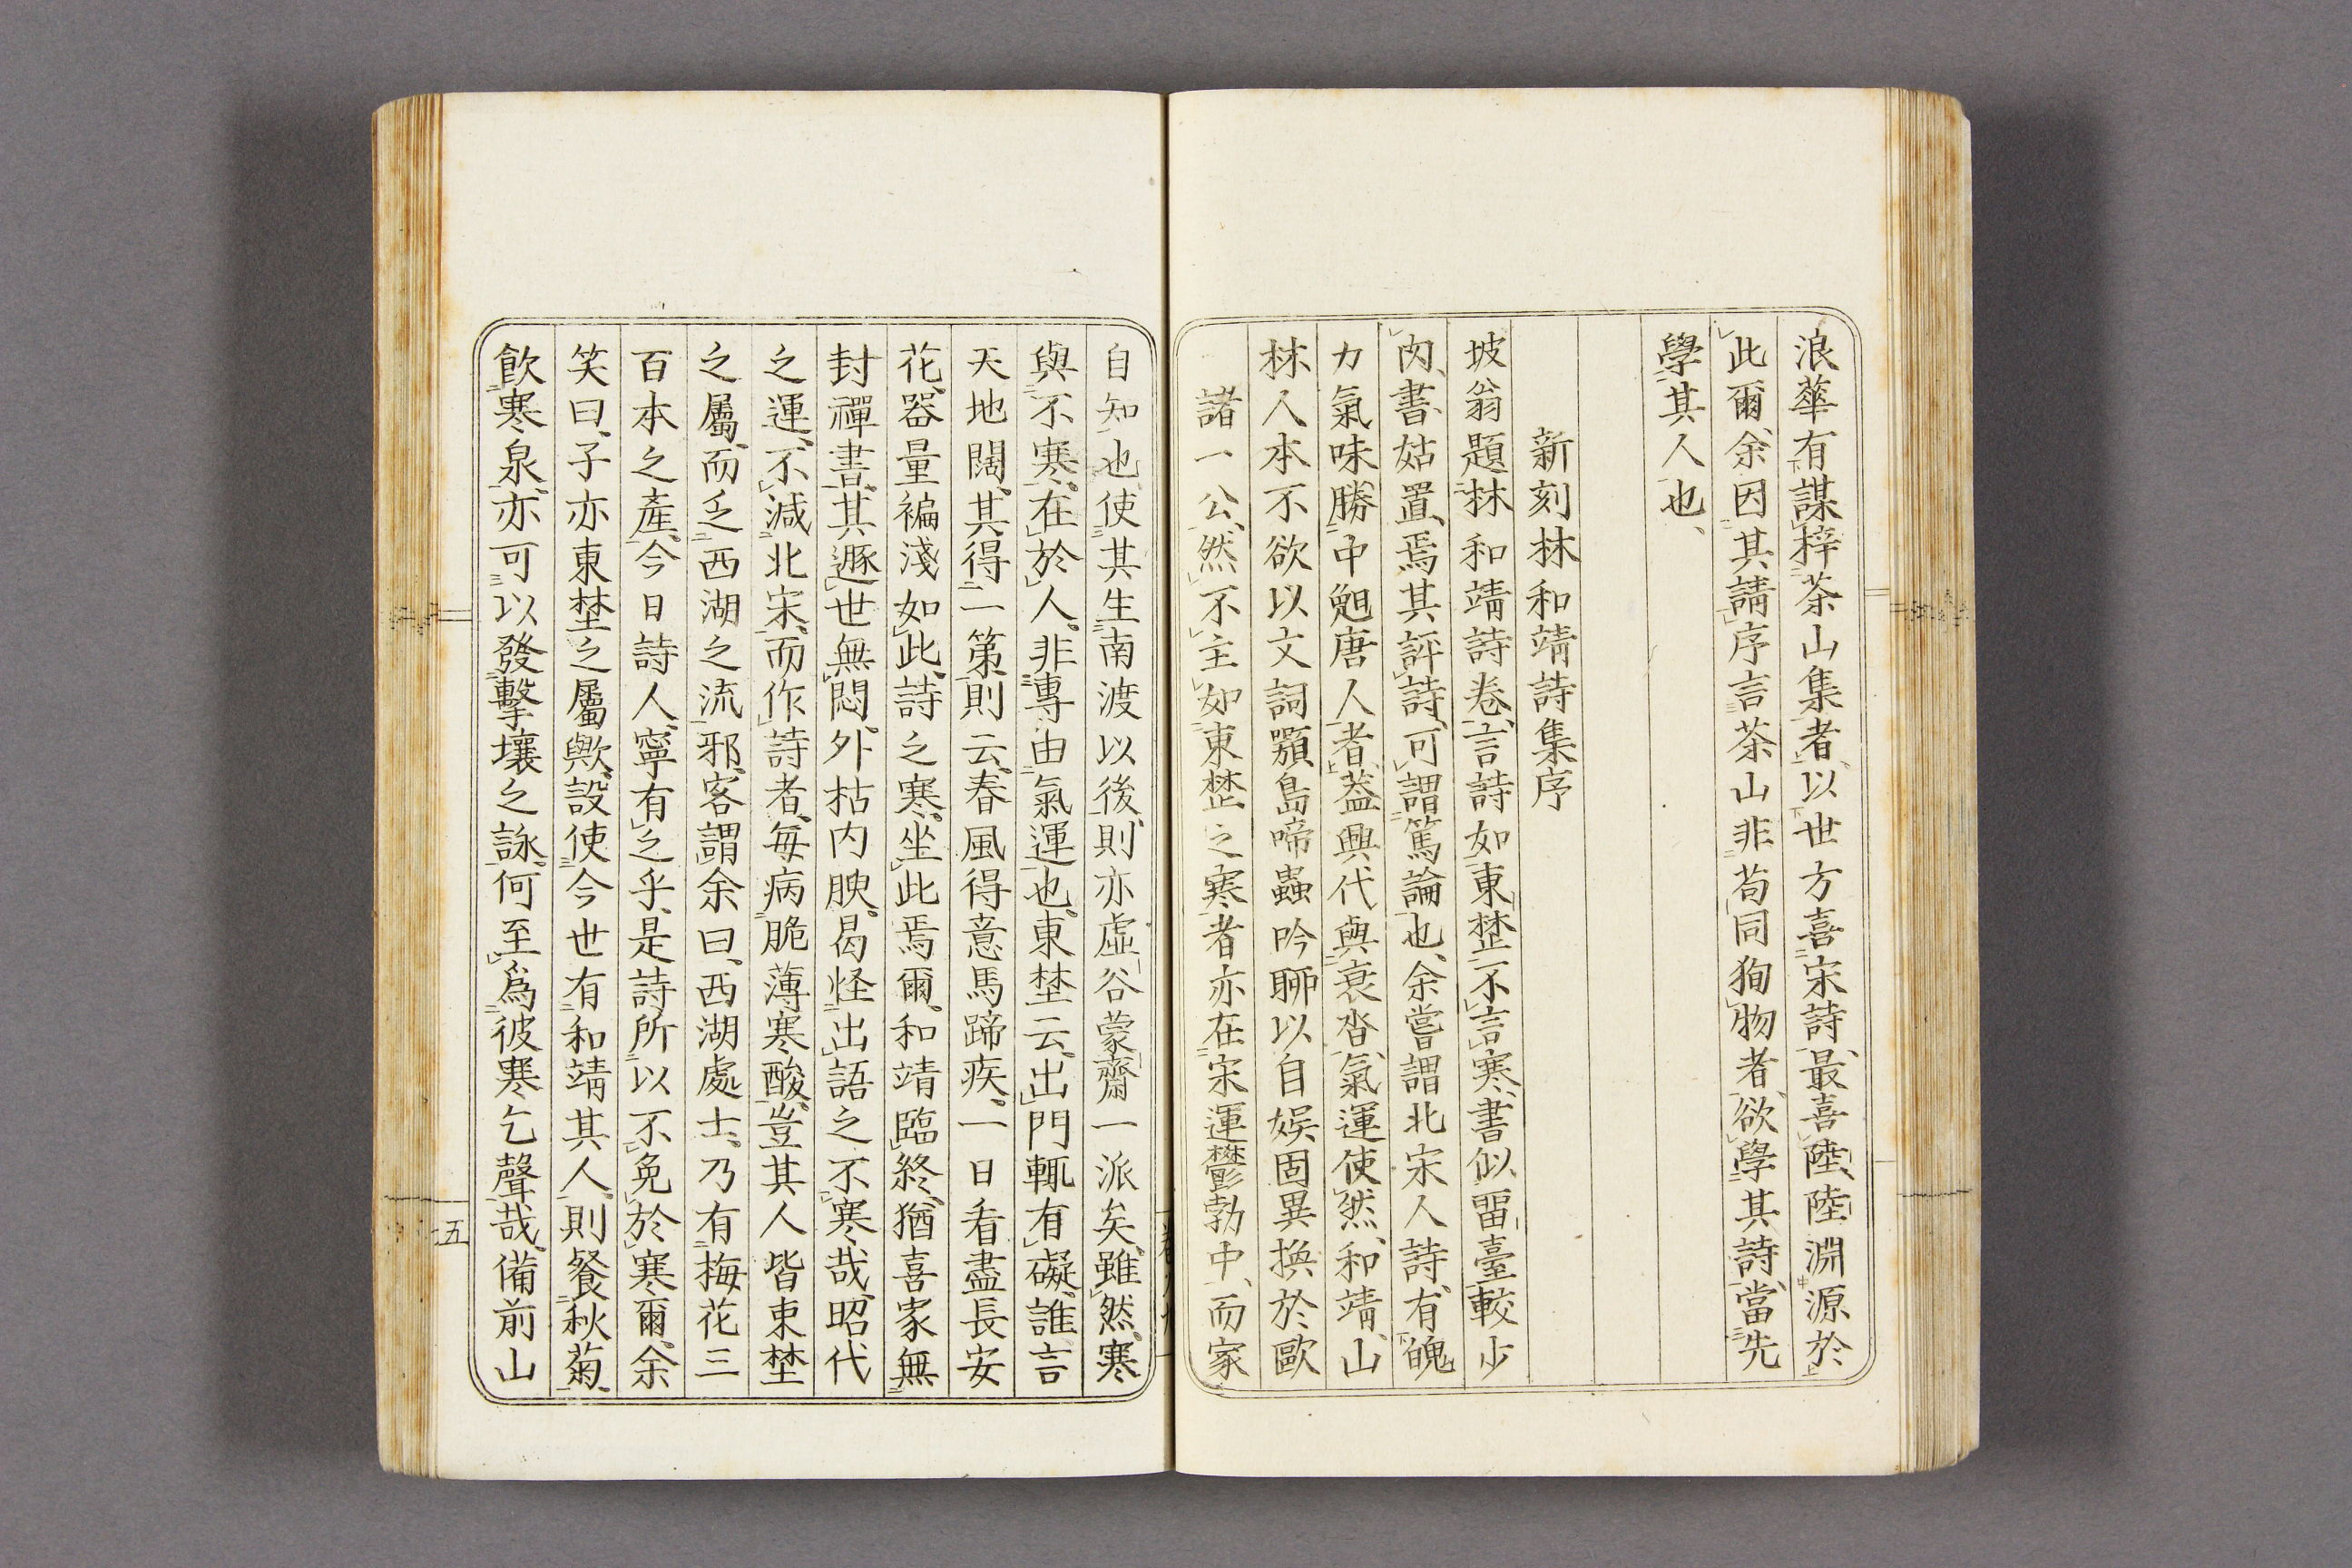 浪華有謀梓茶山集者、以世方喜宋詩、最喜陸、陸淵源於
此爾、余因其請序、言茶山非苟同狥物者、欲學其詩、當先
學其人也、
新刻林和靖詩集序
坡翁題林和靖詩卷、言詩如東埜不言寒、書似畱臺較少
肉、書姑置焉、其評詩、可謂篤論也、余嘗謂北宋人詩、有
力氣味勝中晚唐人者、蓋興代與衰沓、氣運使然、和靖、山
林人、本不欲以文詞顎島啼蟲吟聊以自娛、固異換於歐
諸一公、然不主如東埜之寒者、亦在宋運鬱勃中、而家
自知也、使其生南渡以後、則亦虛谷蒙齋一派矣、雖然、寒
與不寒、在於人、非專由氣運也、東埜云、出門輒有礙、誰言
天地闊、其得一第、則云、春風得意馬蹄疾、一日看盡長安
花、器量褊淺如此、詩之寒、坐此焉爾、和靖臨終、猶喜家無
封禪書、其遯世無悶、外枯内腴、曷怪出語之不寒哉、昭代
之運、不減北宋、而作詩者、每病脆薄寒酸、豈其人皆東埜
之屬、而乏西湖之流邪、客謂余曰、西湖處士、乃有梅花三
百本之產、今日詩人、寧有之乎、是詩所以不免於寒爾、余
笑曰、子亦東埜之屬歟、設使今世有和靖其人、則餐秋菊、
飲寒泉、亦可以發擊壤之詠、何至爲彼寒乞聲哉、備前山
五